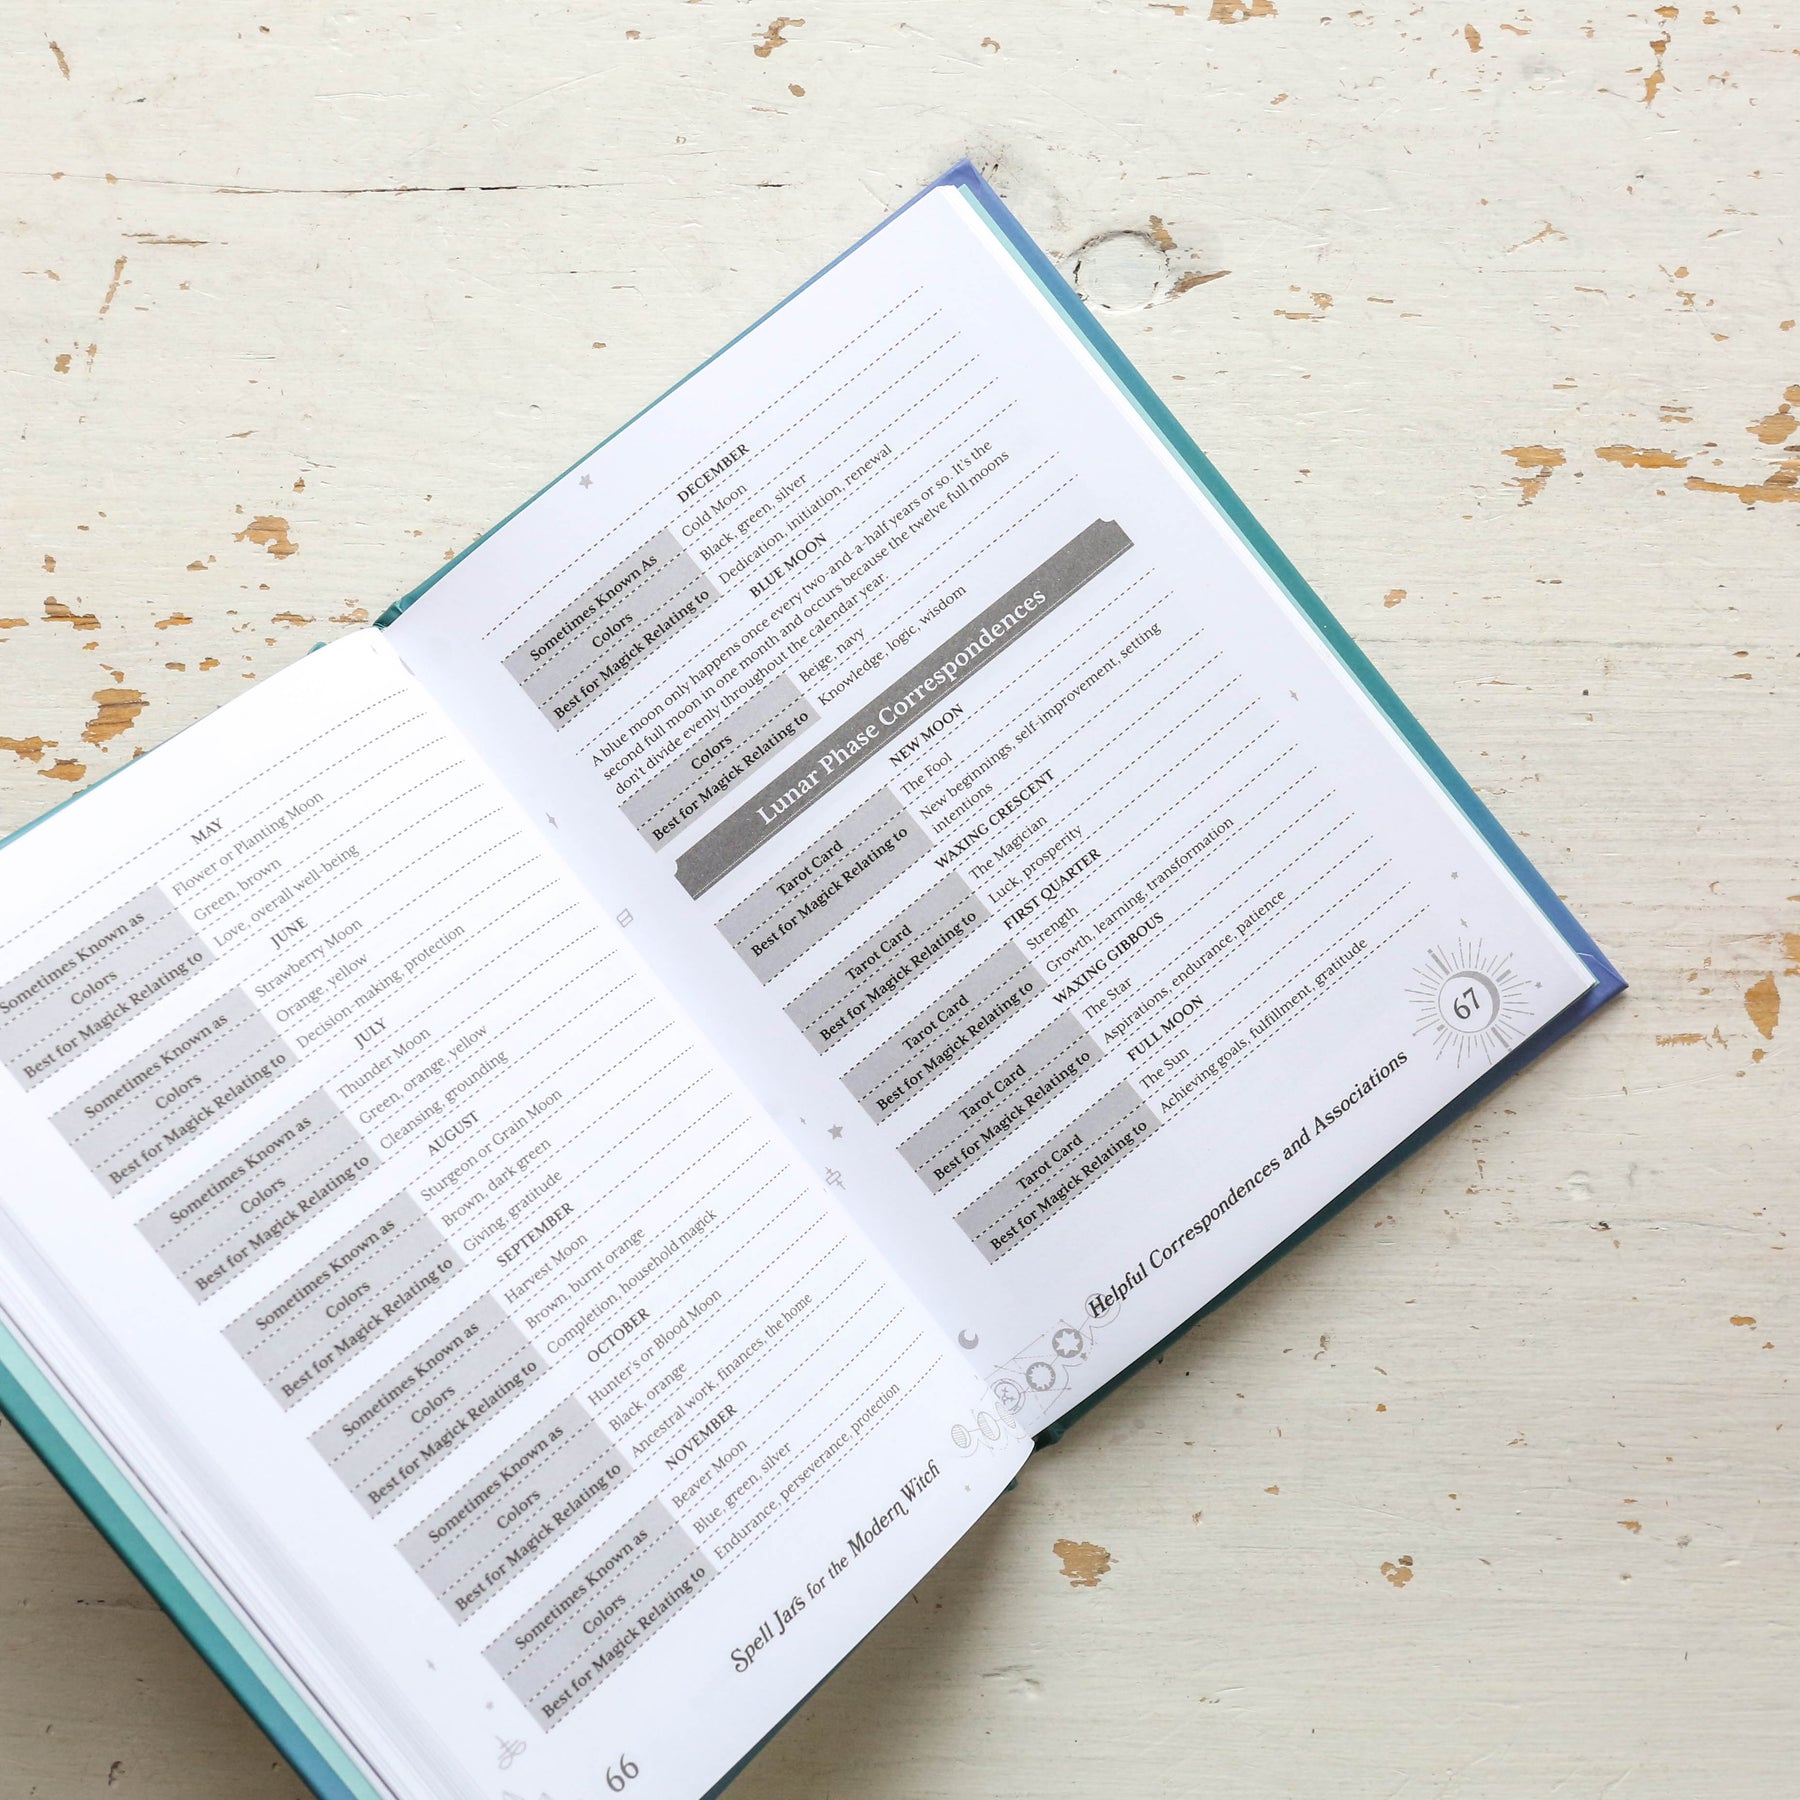 MAY
Sometimes Known as Flower or Planting Moon
Colors Green, brown
Best for Magick Relating to Love, overall well-being
JUNE
Sometimes Known as Strawberry Moon
Colors Orange, yellow
Best for Magick Relating to Decision-making, protection
JULY
Sometimes Known as Thunder Moon
Colors Green, orange, yellow
Best for Magick Relating to Cleansing, grounding
AUGUST
Sometimes Known as Sturgeon or Grain Moon
Colors Brown, dark green
Best for Magick Relating to Giving, gratitude
SEPTEMBER
Sometimes Known as Harvest Moon
Colors Brown, burnt orange
Best for Magick Relating to Completion, household magick
OCTOBER
Sometimes Known as Hunter's or Blood Moon
Colors Black, orange
Best for Magick Relating to Ancestral work, finances, the home
NOVEMBER
Sometimes Known as Beaver Moon
Colors Blue, green, silver
Best for Magick Relating to Endurance, perseverance, protection
66
Spell Jars for the Modern Witch
DECEMBER
Sometimes Known As Cold Moon
Colors Black, green, silver
Best for Magick Relating to Dedication, initiation, renewal
BLUE MOON
A blue moon only happens once every two-and-a-half years or so. It's the
second full moon in one month and occurs because the twelve full moons
don't divide evenly throughout the calendar year.
Colors Beige, navy
Best for Magick Relating to Knowledge, logic, wisdom
Lunar Phase Correspondences
NEW MOON
Tarot Card The Fool
Best for Magick Relating to New beginnings, self-improvement, setting
intentions
WAXING CRESCENT
Tarot Card The Magician
Best for Magick Relating to Luck, prosperity
FIRST QUARTER
Tarot Card Strength
Best for Magick Relating to Growth, learning, transformation
WAXING GIBBOUS
Tarot Card The Star
Best for Magick Relating to Aspirations, endurance, patience
FULL MOON
Tarot Card The Sun
Best for Magick Relating to Achieving goals, fulfillment, gratitude
Helpful Correspondences and Associations
67